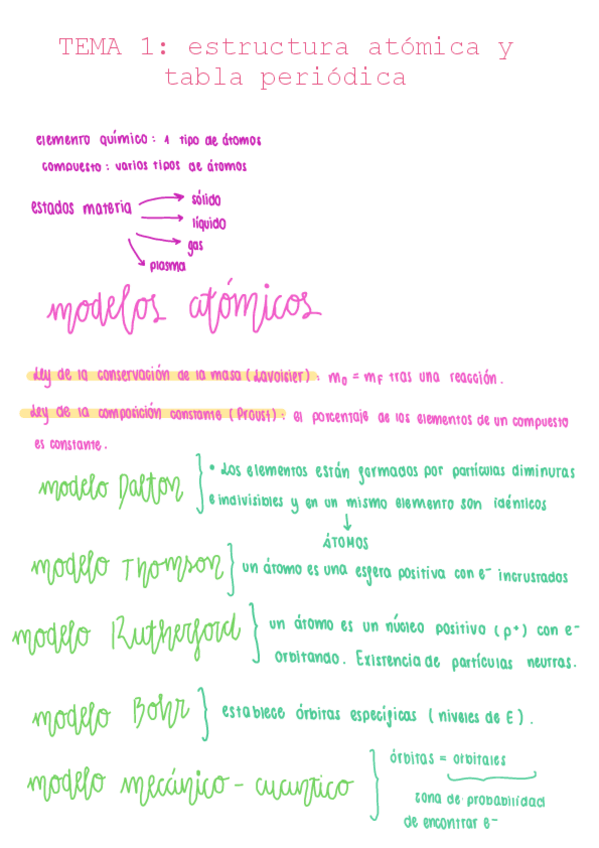 TEMA 1: estructura atómica y
tabla periódica
elemento químico: 1 tipo de átomos
compuesto: varios tipos de átomos
estados materia
sólido
líquido
gas
plasma
modelos atómicos
Ley de la conservación de la masa (Lavoicier): m₀ = mF tras una reacción.
Ley de la composición constante (Proust): el porcentaje de los elementos de un compuesto
es constante.
modelo Dalton
• Los elementos están formados por partículas diminutas
e indivisibles y en un mismo elemento son idénticos
↓
ÁTOMOS
modelo Thomson
un átomo es una esfera positiva con e⁻ incrustados
modelo Rutherford
un átomo es un núcleo positivo (p⁺) con e⁻
orbitando. Existencia de partículas neutras.
modelo Bohr
establece órbitas específicas (niveles de E).
modelo mecánico-cuántico
órbitas = orbitales
zona de probabilidad
de encontrar e⁻